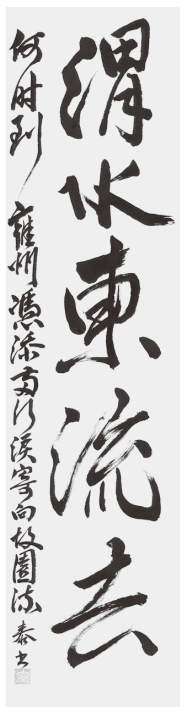 渭水東流去
何时到雍州憑添両行涙寄向故園流 泰书